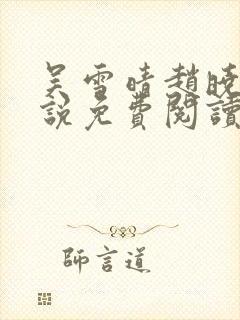 吴雪晴趙曉
說免費閱讀
師言道